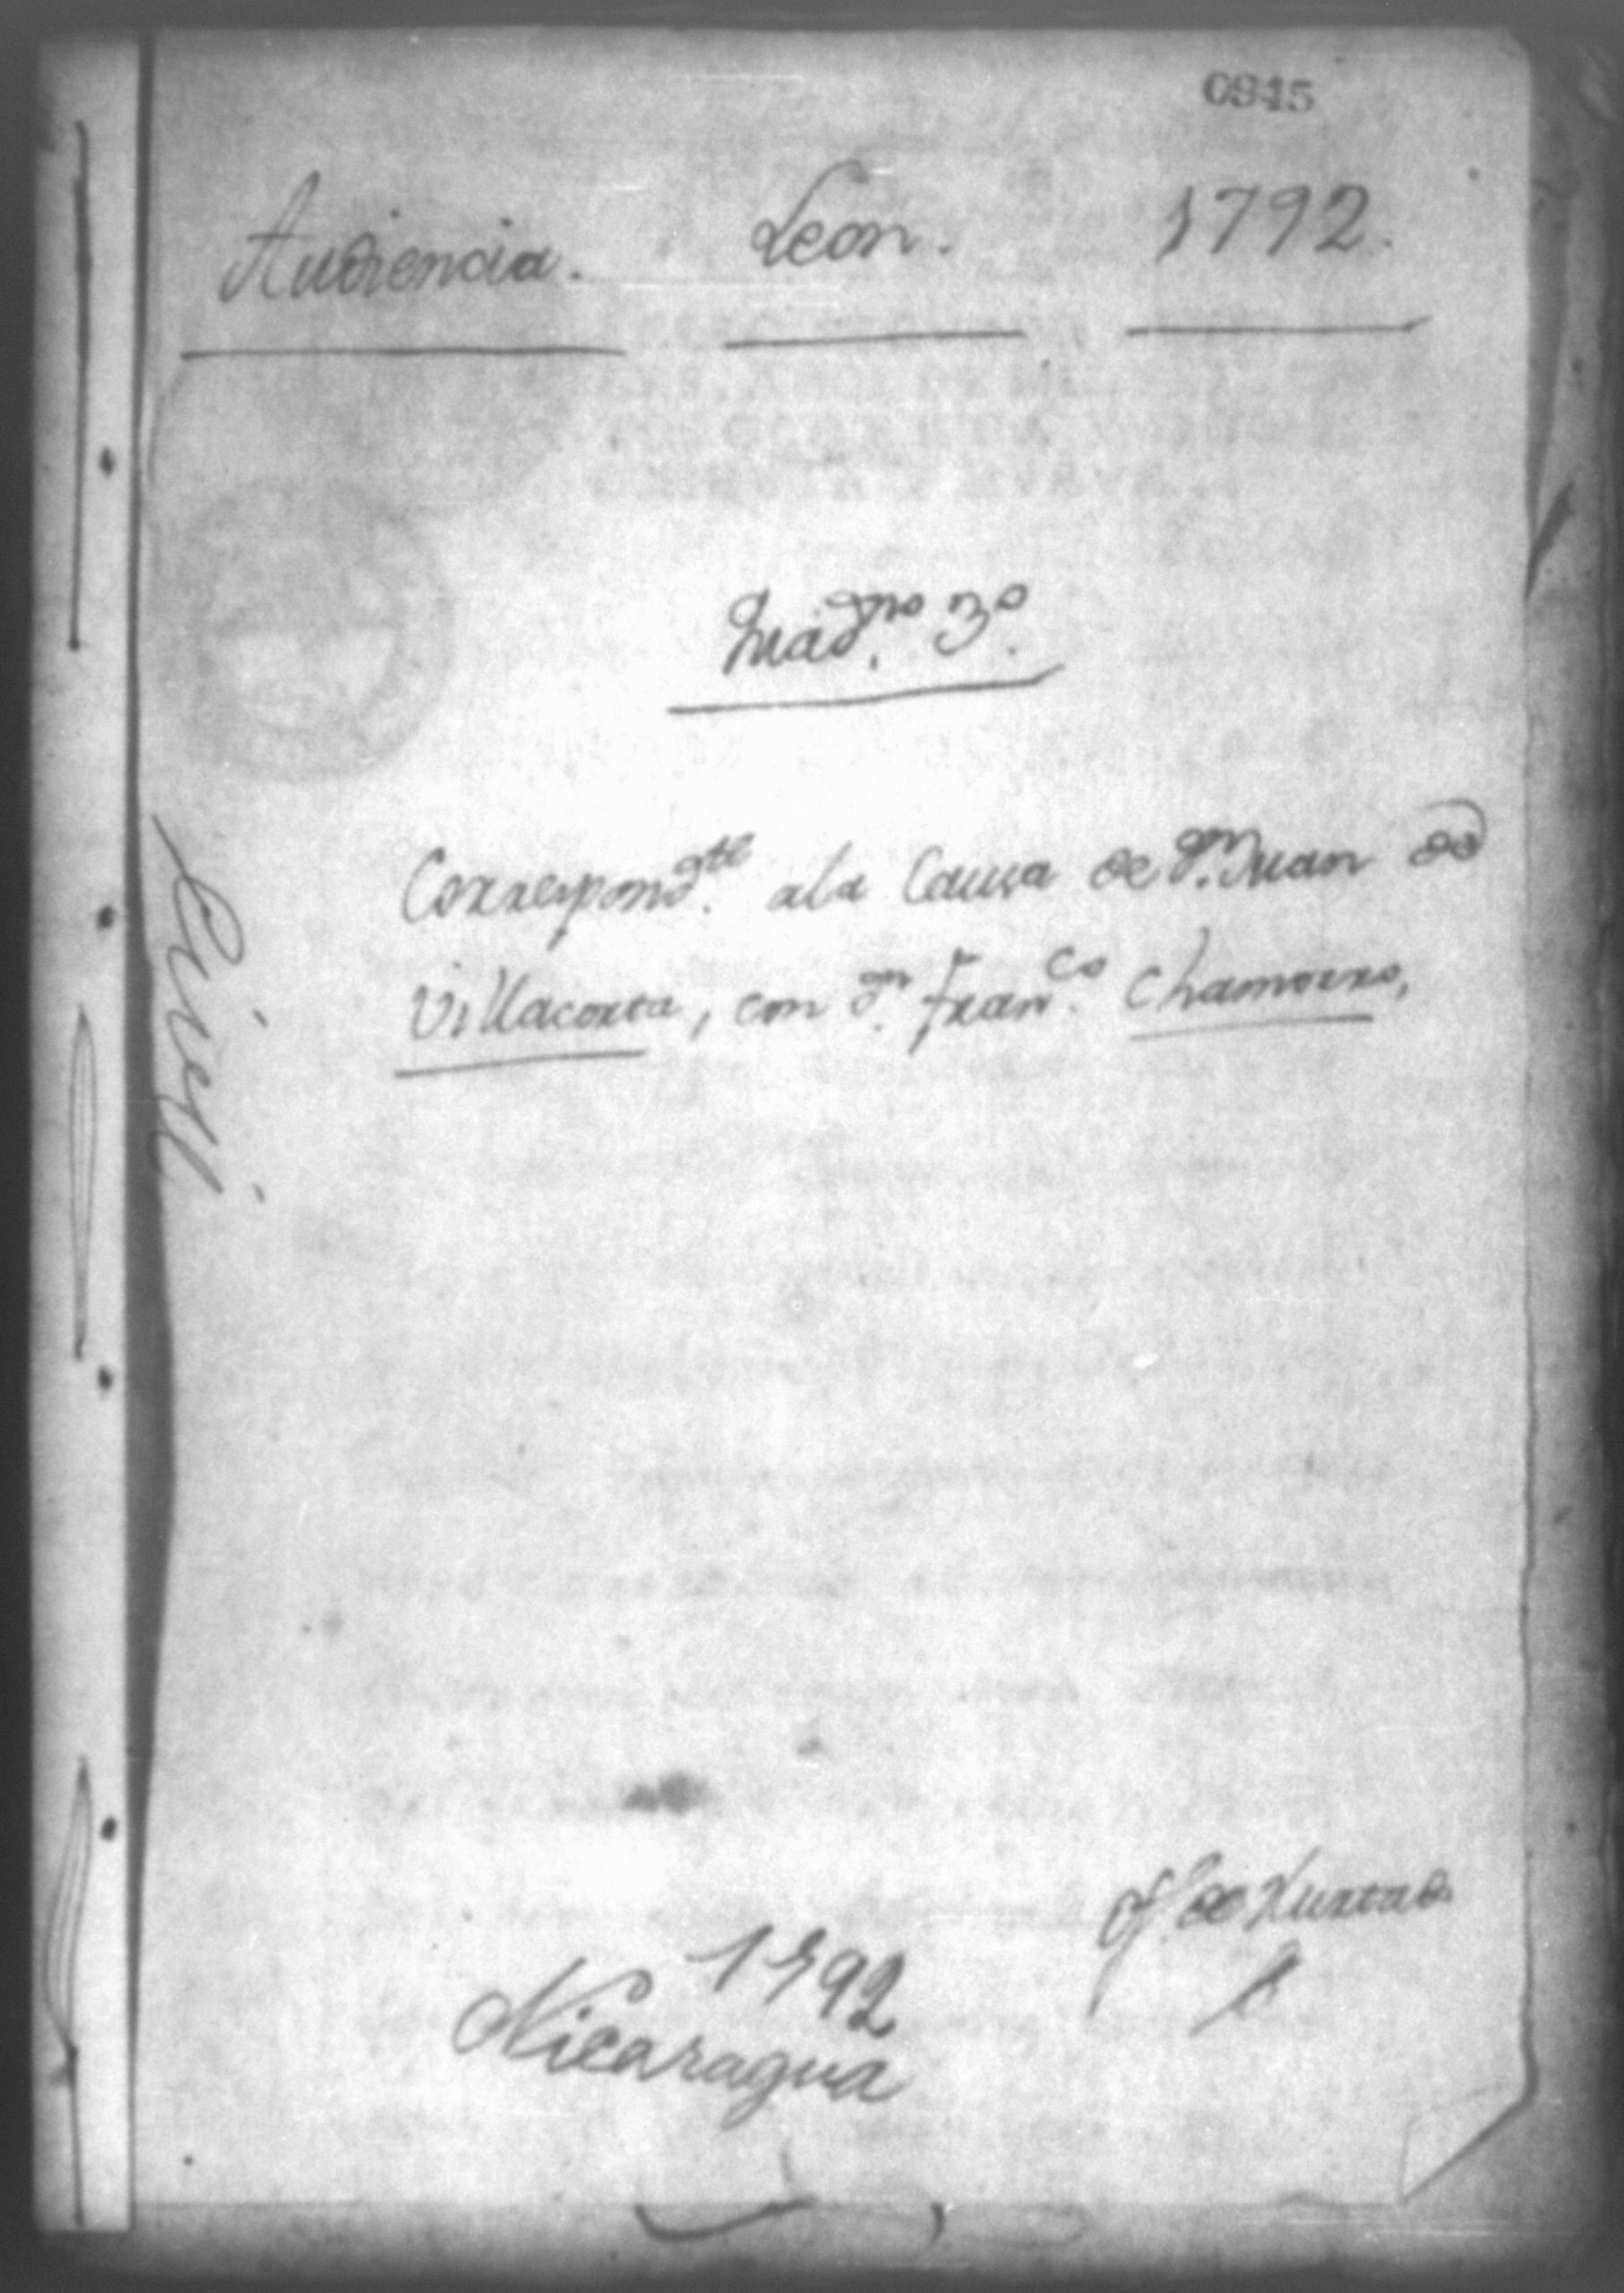 0945
Audiencia. Leon. 1792.
Quad.rno 3.o
Correspond.te ala Causa de d.n Juan de
Villacorta, con d.n Fran.co Chamorro,
Civil.
of.o de Hurtado
1792
Nicaragua